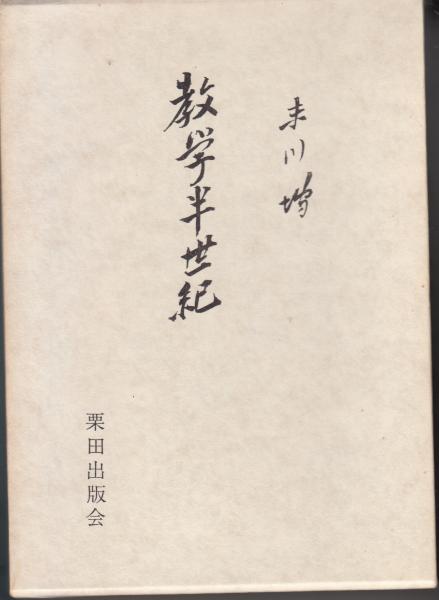 末川博
教学半世紀
栗田出版会